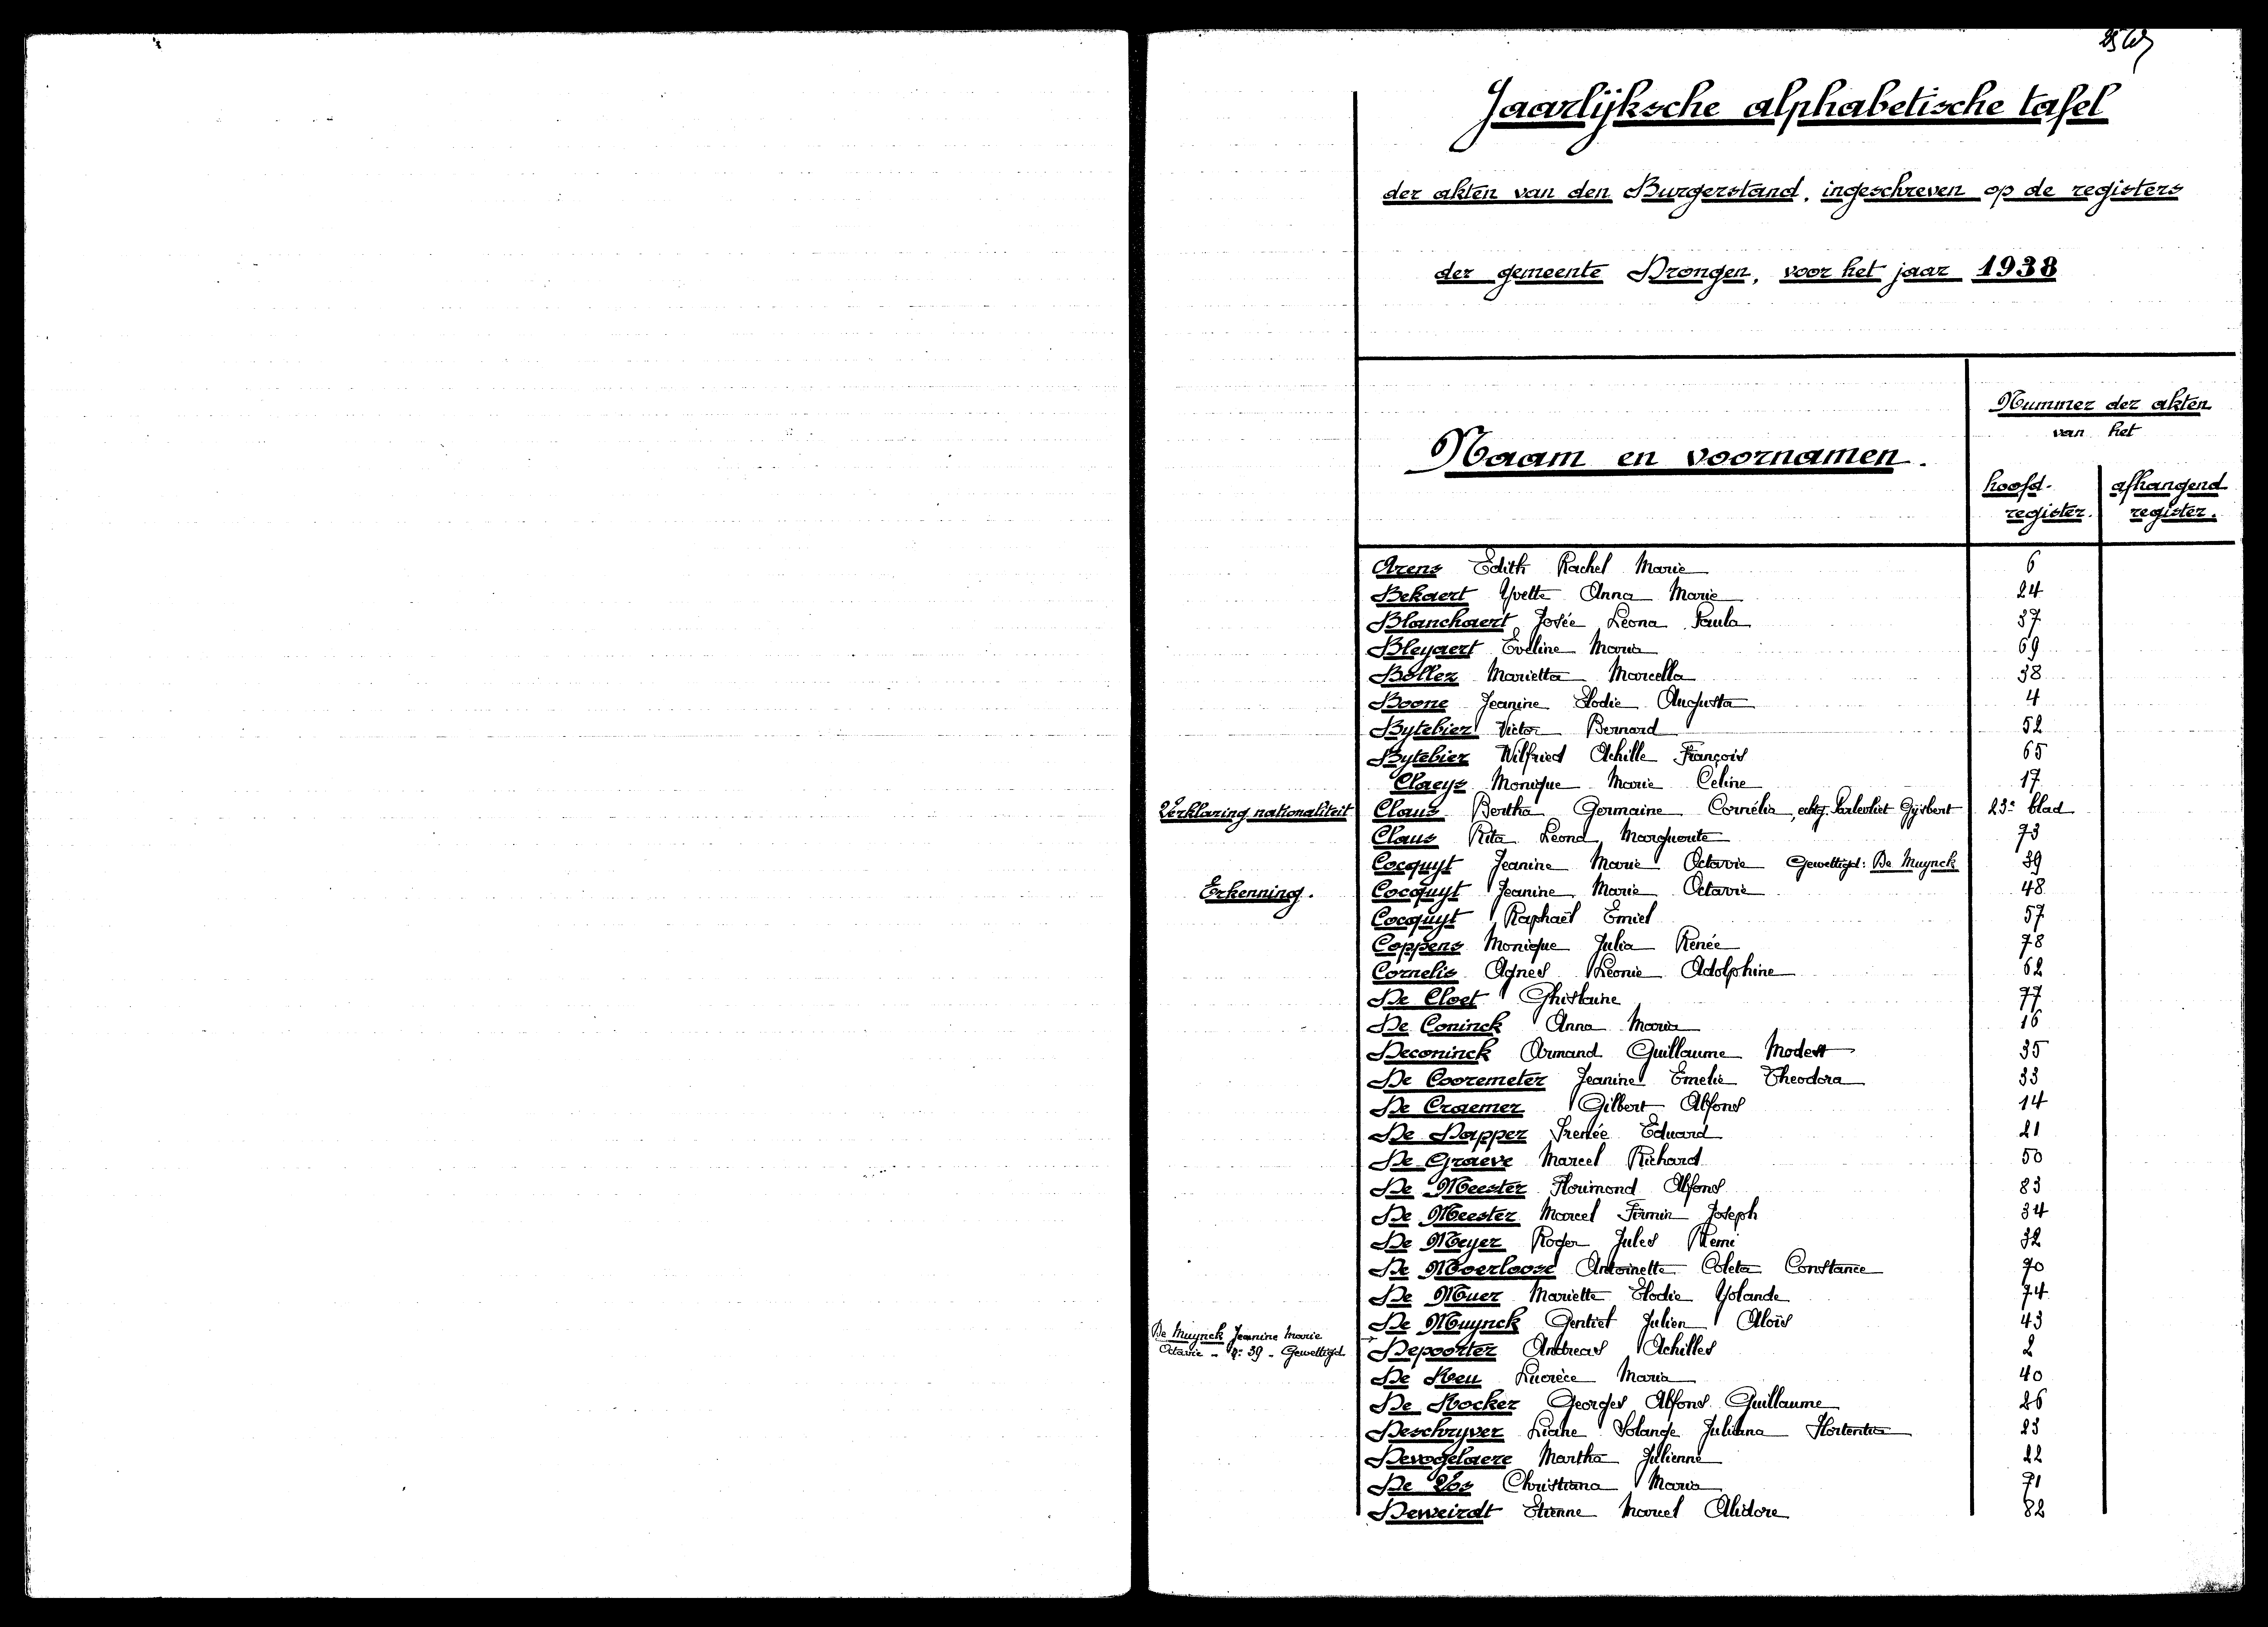 Jaarlijksche alphabetische tafel
der akten van den Burgerstand, ingeschreven op de registers
der gemeente Drongen, voor het jaar 1938
Naam en voornamen.
Nummer der akten
van het
hoofd-
register.
afhangend
register.
Arens Edith Rachel Marie 6
Bekaert Yvette Anna Marie 24
Blanchaert Josée Léona Paula 37
Bleyaert Eveline Maria 69
Bollez Marietta Marcella 38
Boone Jeanine Elodie Augusta 4
Bytebier Victor Bernard 52
Bytebier Wilfried Achille François 65
Claeys Monique Marie Celine 17
Verklaring nationaliteit Claus Bertha Germaine Cornélia, echtg. Parlevliet Gijsbert 23e blad
Claus Rita Léona Marguerite 73
Cocquyt Jeanine Marie Octavie Gewettigd: De Muynck 39
Erkenning. Cocquyt Jeanine Marie Octavie 48
Cocquyt Raphaël Emiel 57
Coppens Monique Julia Renée 78
Cornelis Agnes Léonie Adolphine 62
De Cloet Ghislaine 77
De Coninck Anna Maria 16
Deconinck Armand Guillaume Modest 35
De Cooremeter Jeanine Emelie Theodora 33
De Craemer Gilbert Alfons 14
De Dapper Irenée Eduard 21
De Graeve Marcel Richard 50
De Meester Florimond Alfons 83
De Meester Marcel Firmin Joseph 34
De Meyer Roger Jules Remi 32
De Moerloose Antoinette Coleta Constance 70
De Muer Mariette Elodie Yolande 74
De Muynck Gentiel Julien Aloïs 43
De Muynck Jeanine Marie
Octavie - n: 39 - Gewettigd
Depoorter Andreas Achilles 2
De Reu Lucrèce Maria 40
De Rocker Georges Alfons Guillaume 26
Deschryver Liane Solange Juliana Hortentia 23
Devogelaere Martha Julienne 22
De Vos Christiana Maria 71
Deweirdt Etienne Marcel Alidore 82